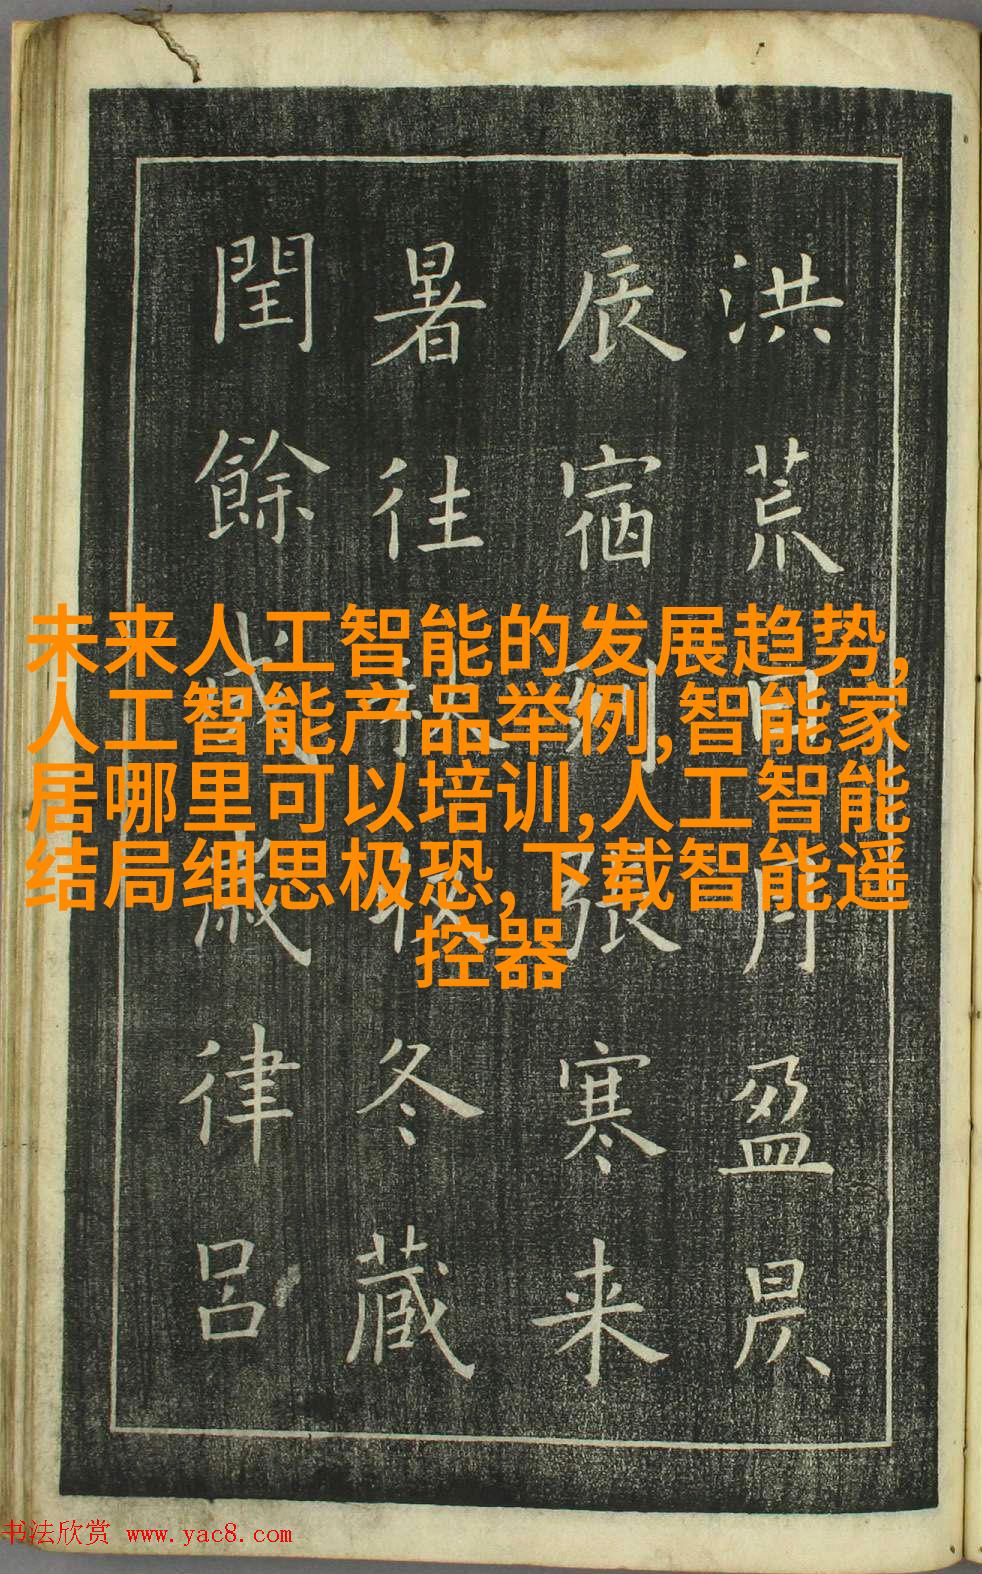 洪荒日月盈昃
辰宿列張寒来
暑往秋收冬藏
閏餘成歲律呂
未来人工智能的发展趋势,
人工智能产品举例,智能家
居哪里可以培训,人工智能
结局细思极恐,下载智能遥
控器
书法欣赏 www.yac8.com